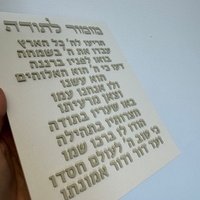 מזמור לתודה
הריעו לה' כל הארץ
עבדו את ה' בשמחה
בואו לפניו ברננה
דעו כי ה' הוא האלוהים
הוא עשנו
ולו אנחנו עמו
וצאן מרעיתו
באו שעריו בתודה
חצרותיו בתהילה
הודו לו ברכו שמו
כי טוב ה' לעולם חסדו
ועד דור ודור אמונתו